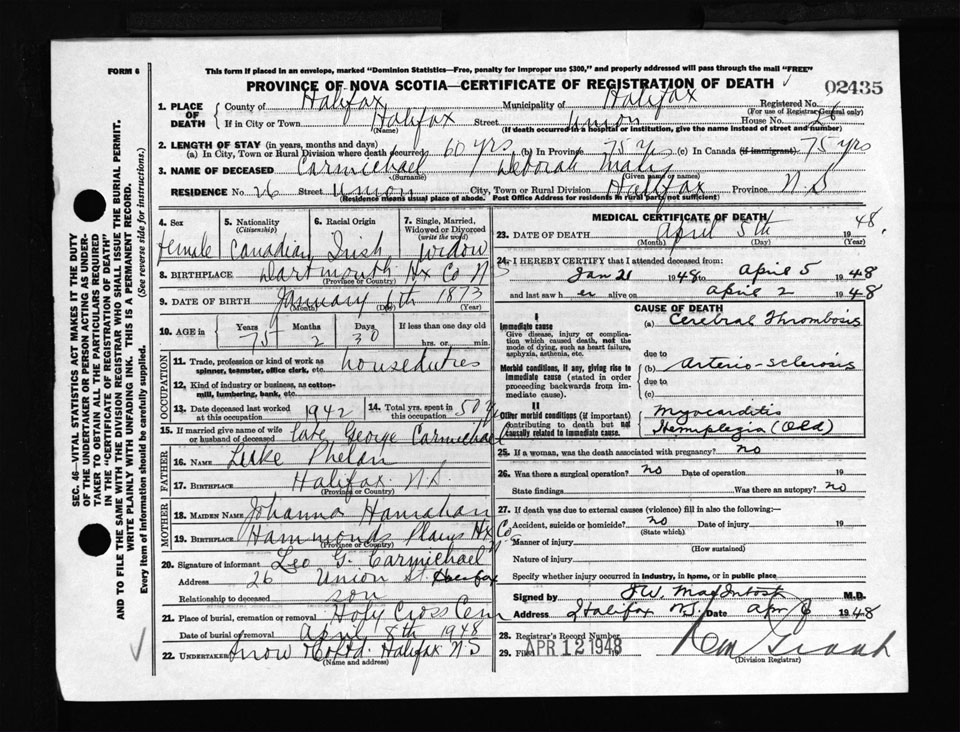 FORM 6
This form if placed in an envelope, marked "Dominion Statistics—Free, penalty for improper use $300," and properly addressed will pass through the mail "FREE"
PROVINCE OF NOVA SCOTIA—CERTIFICATE OF REGISTRATION OF DEATH
02435
1. PLACE OF DEATH County of Halifax Municipality of Halifax Registered No.
(For use of Registrar General only)
If in City or Town Halifax Street Union House No. 26
(Name) (If death occurred in a hospital or institution, give the name instead of street and number)
2. LENGTH OF STAY (in years, months and days)
(a) In City, Town or Rural Division where death occurred 60 yrs (b) In Province 75 yrs (c) In Canada (if immigrant) 75 yrs
3. NAME OF DECEASED Carmichael Deborah Mary
(Surname) (Given name or names)
RESIDENCE No. 26 Street Union City, Town or Rural Division Halifax Province N S
(Residence means usual place of abode. Post Office Address for residents in rural parts not sufficient)
4. Sex Female
5. Nationality (Citizenship) Canadian
6. Racial Origin Irish
7. Single, Married, Widowed or Divorced (write the word) Widow
8. BIRTHPLACE Dartmouth Hx Co N S
(Province or Country)
9. DATE OF BIRTH January 6th 1873
(Month) (Day) (Year)
10. AGE in Years 75 Months 2 Days 30 If less than one day old hrs. or min.
OCCUPATION
11. Trade, profession or kind of work as spinner, teamster, office clerk, etc. house duties
12. Kind of industry or business, as cotton-mill, lumbering, bank, etc.
13. Date deceased last worked at this occupation 1942
14. Total yrs. spent in this occupation 50 y
15. If married give name of wife or husband of deceased late George Carmichael
FATHER
16. NAME Luke Phelan
17. BIRTHPLACE Halifax N.S.
(Province or Country)
MOTHER
18. MAIDEN NAME Johanna Hanrahan
19. BIRTHPLACE Hammonds Plains Hx Co N S
(Province or Country)
20. Signature of informant Leo G. Carmichael
Address 26 Union St. Halifax
Relationship to deceased son
21. Place of burial, cremation or removal Holy Cross Cem
Date of burial or removal April 8th 1948
22. UNDERTAKER Snow & Co Ltd. Halifax N.S
(Name and address)
MEDICAL CERTIFICATE OF DEATH
23. DATE OF DEATH April 5th 1948.
(Month) (Day) (Year)
24. I HEREBY CERTIFY that I attended deceased from:
Jan 21 1948 to April 5 1948
and last saw her alive on April 2 1948
CAUSE OF DEATH
I
Immediate cause
Give disease, injury or complication which caused death, not the mode of dying, such as heart failure, asphyxia, asthenia, etc.
(a) Cerebral Thrombosis
due to
Morbid conditions, if any, giving rise to immediate cause (stated in order proceeding backwards from immediate cause).
(b) Arterio-sclerosis
due to
(c)
II
Other morbid conditions (if important) contributing to death but not causally related to immediate cause.
Myocarditis
Hemiplegia (Old)
25. If a woman, was the death associated with pregnancy? no
26. Was there a surgical operation? no Date of operation 19
State findings Was there an autopsy? no
27. If death was due to external causes (violence) fill in also the following:—
Accident, suicide or homicide? no Date of injury 19
(State which)
Manner of injury
(How sustained)
Nature of injury
Specify whether injury occurred in industry, in home, or in public place
Signed by J W. MacIntosh M.D.
Address Halifax N.S. Date Apr 6 1948
28. Registrar's Record Number
29. Filed APR 12 1948
(Division Registrar)
SEC. 46—VITAL STATISTICS ACT MAKES IT THE DUTY
OF THE UNDERTAKER OR PERSON ACTING AS UNDER-
TAKER TO OBTAIN ALL THE PARTICULARS REQUIRED
IN THE "CERTIFICATE OF REGISTRATION OF DEATH"
AND TO FILE THE SAME WITH THE DIVISION REGISTRAR WHO SHALL ISSUE THE BURIAL PERMIT.
WRITE PLAINLY WITH UNFADING INK. THIS IS A PERMANENT RECORD.
Every item of information should be carefully supplied. (See reverse side for instructions.)